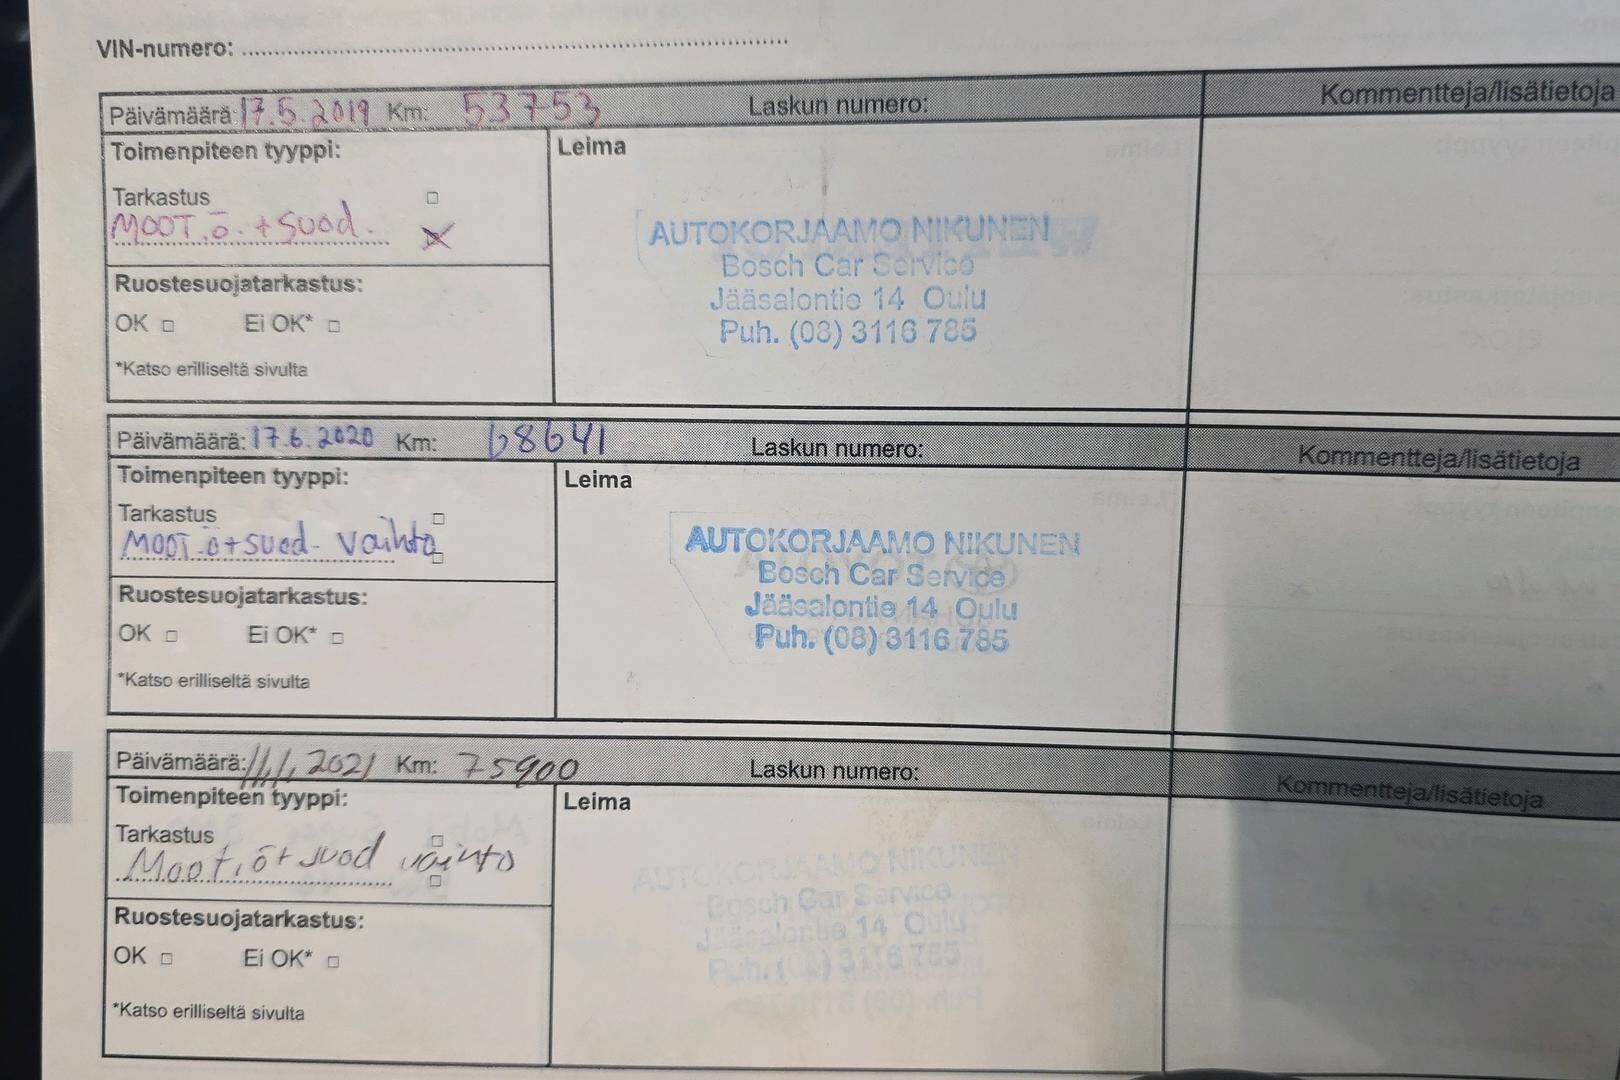 VIN-numero:
Päivämäärä: 17.5.2019 Km: 53753 Laskun numero: Kommentteja/lisätietoja
Toimenpiteen tyyppi: Leima
Tarkastus
MOOT.ö. + suod.
AUTOKORJAAMO NIKUNEN
Bosch Car Service
Jääsalontie 14 Oulu
Puh. (08) 3116 785
Ruostesuojatarkastus:
OK Ei OK*
*Katso erilliseltä sivulta
Päivämäärä: 17.6.2020 Km: 68641 Laskun numero: Kommentteja/lisätietoja
Toimenpiteen tyyppi: Leima
Tarkastus
MOOT.ö+suod- vaihto
AUTOKORJAAMO NIKUNEN
Bosch Car Service
Jääsalontie 14 Oulu
Puh. (08) 3116 785
Ruostesuojatarkastus:
OK Ei OK*
*Katso erilliseltä sivulta
Päivämäärä: 2021 Km: 75900 Laskun numero: Kommentteja/lisätietoja
Toimenpiteen tyyppi: Leima
Tarkastus
Moot.ö+ suod vaihto
AUTOKORJAAMO NIKUNEN
Bosch Car Service
Jääsalontie 14 Oulu
Puh. (08) 3116 785
Ruostesuojatarkastus:
OK Ei OK*
*Katso erilliseltä sivulta